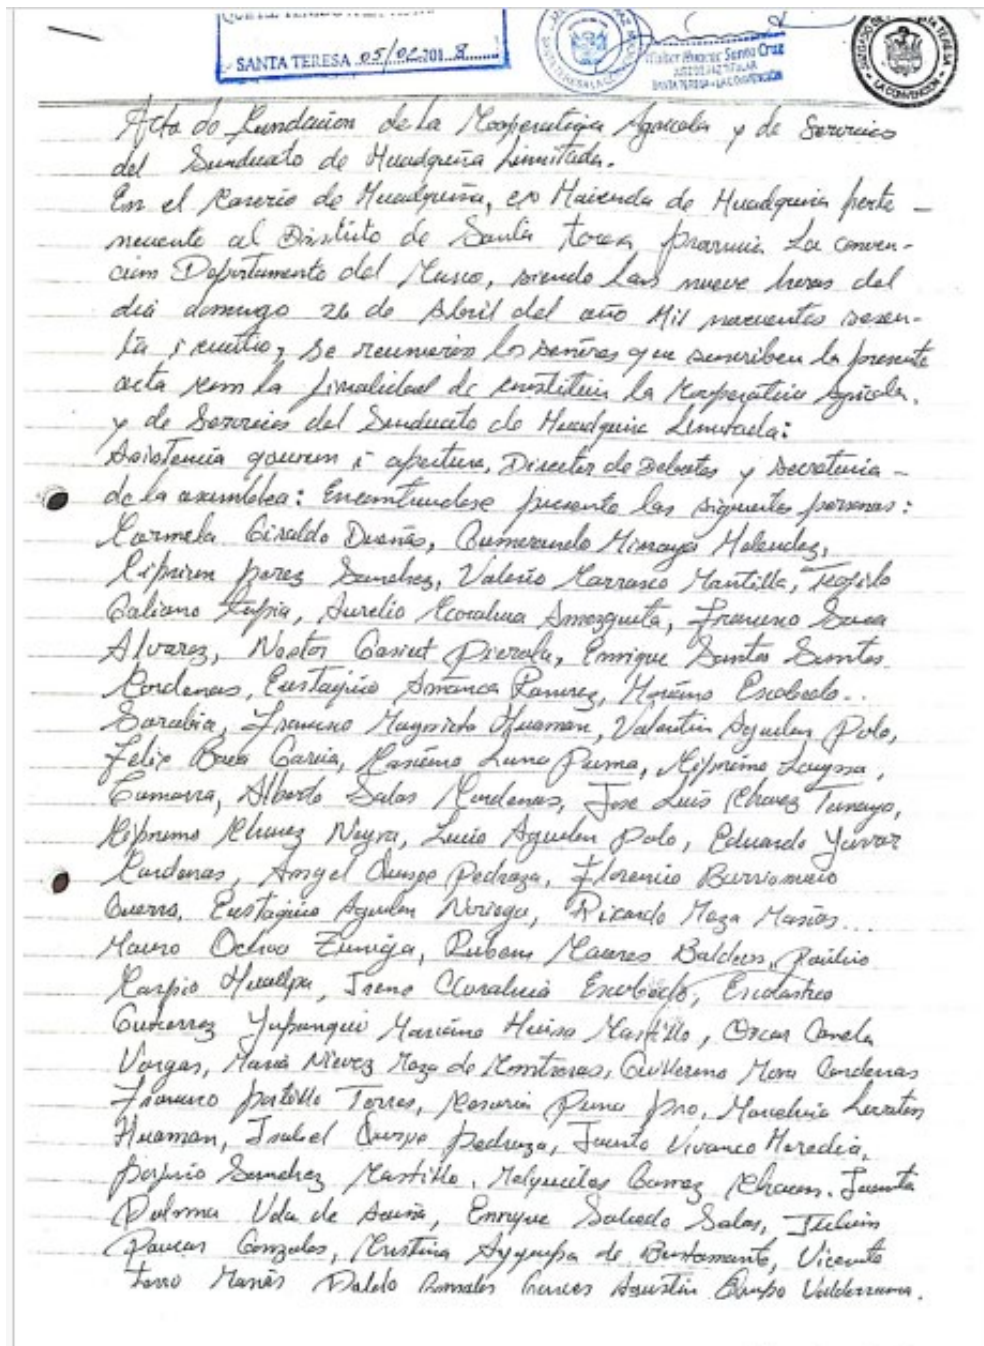 SANTA TERESA 05/02/2018
Walter Huacac Sonno Cruz
JUEZ DE PAZ TITULAR
SANTA TERESA - LA CONVENCIÓN
LA CONVENCION
Acta de Fundacion de la Cooperativa Agricola y de Servicios
del Sindicato de Huadquiña Limitada.
En el Caserio de Huadquiña, ex Hacienda de Huadquiña perte-
neciente al Distrito de Santa teresa provincia La conven-
cion Departamento del Cusco, siendo las nueve horas del
dia domingo 26 de Abril del año Mil novecientos sesen-
ta i cuatro, se reunieron los señores que suscriben la presente
acta con la finalidad de constituir la Cooperativa Agricola
y de Servicios del Sindicato de Huadquiña Limitada:
Asistencia quorum i apertura, Director de Debates y secretaria-
de la asamblea: Encontrandose presente las siguientes personas:
Carmela Giraldo Dueñas, Gumercindo Minaya Melendez,
perez Sanchez, Valerio Carrasco Mantilla, Teofilo
Galiano Tapia, Aurelio Amezquita, Francisco
Alvarez, Nestor Pierola, Enrique Santos
Cardenas, Eustaquio Ramirez, Mariano Escobedo..
Sarabia, Francisco Huaman, Valentin Aguilar Polo,
Felix Baca Garcia, Casimiro Luna Puma, Cipriano
Gamarra, Alberto Salas Cardenas, Jose Luis Chavez Tamayo,
Cipriano Chavez Neyra, Lucio Aguilar Polo, Eduardo
Cardenas, Angel Quispe Pedraza, Florencio Barrionuevo
Guerra, Eustaquio Aguilar Noriega, Ricardo Meza Masias...
Mauro Ochoa Zuniga, Ruben Caceres Paulino
Carpio Huallpa, Irene Escobedo, Escolastico
Gutierrez Yupanqui Mariano Huisa Castillo, Oscar Canela
Vargas, Maria Nievez Meza de Contreras, Guillermo Mora Cardenas
Francisco portillo Torres, Rosario Puma
Huaman, Isabel Quispe pedraza, Vivanco Heredia,
porfirio Sanchez Castillo, Melquiades Gamez Juanita
Palma Vda de Acuña, Enrique Salcedo Salas,
Paucar Gonzales, Cristina de Bustamante, Vicente
Agustin Quispe Valderrama.